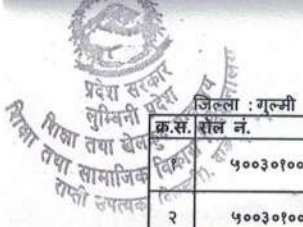 प्रदेश सरकार
लुम्बिनी प्रदेश
शिक्षा तथा खेलकुद
शिक्षा तथा सामाजिक विकास
राप्ती उपत्यका
जिल्ला : गुल्मी
क्र.सं. रोल नं.
१ ५००३०१००
२ ५००३०१००